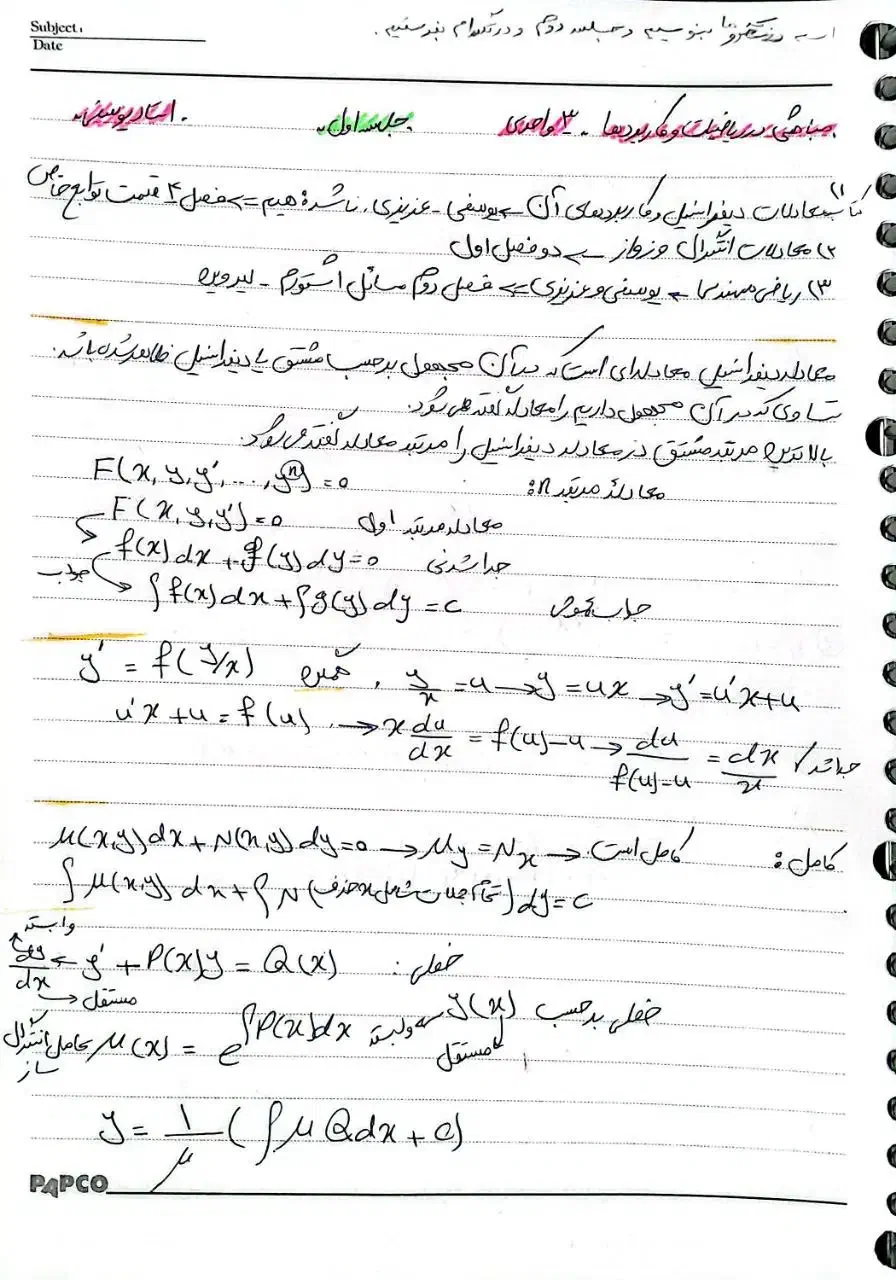 Subject:
Date
و در تلگرام بفرستیم.
مباحثی در ریاضیات و کاربردها - ۳ واحدی جلسه اول. استاد یوسفی.
۱) کتاب معادلات دیفرانسیل و کاربردهای آن → یوسفی - عزیزی. ناشر فهیم => فصل ۴ قسمت توابع خاص
۲) معادلات انتگرال وزواز => دو فصل اول
۳) ریاضی مهندسی → یوسفی و عزیزی => فصل دوم مسائل اشتورم - لیوویل
معادله دیفرانسیل معادله‌ای است که در آن مجهول برحسب مشتق یا دیفرانسیل ظاهر شده باشد.
تساوی که در آن مجهول داریم را معادله گفته می‌شود.
بالاترین مرتبه مشتق در معادله دیفرانسیل را مرتبه معادله گفته می‌شود.
معادله مرتبه n: F(x, y, y', ..., y^(n)) = 0
معادله مرتبه اول F(x, y, y') = 0
جداشدنی f(x)dx + g(y)dy = 0
جواب عمومی ∫f(x)dx + ∫g(y)dy = c جواب
y' = f(y/x) همگن . y/x = u → y = ux → y' = u'x + u
u'x + u = f(u) . → x du/dx = f(u) - u → du/(f(u)-u) = dx/x ✓ جداشد
کامل: M(x,y)dx + N(x,y)dy = 0 → My = Nx → کامل است
∫M(x,y)dx + ∫N(تمام جملات شامل x حذف)dy = c
وابسته
خطی: dy/dx ← y' + P(x)y = Q(x)
مستقل
خطی برحسب y(x) → وابسته μ(x) = e^∫P(x)dx عامل انتگرال ساز
مستقل
y = 1/μ (∫μQdx + c)
PAPCO